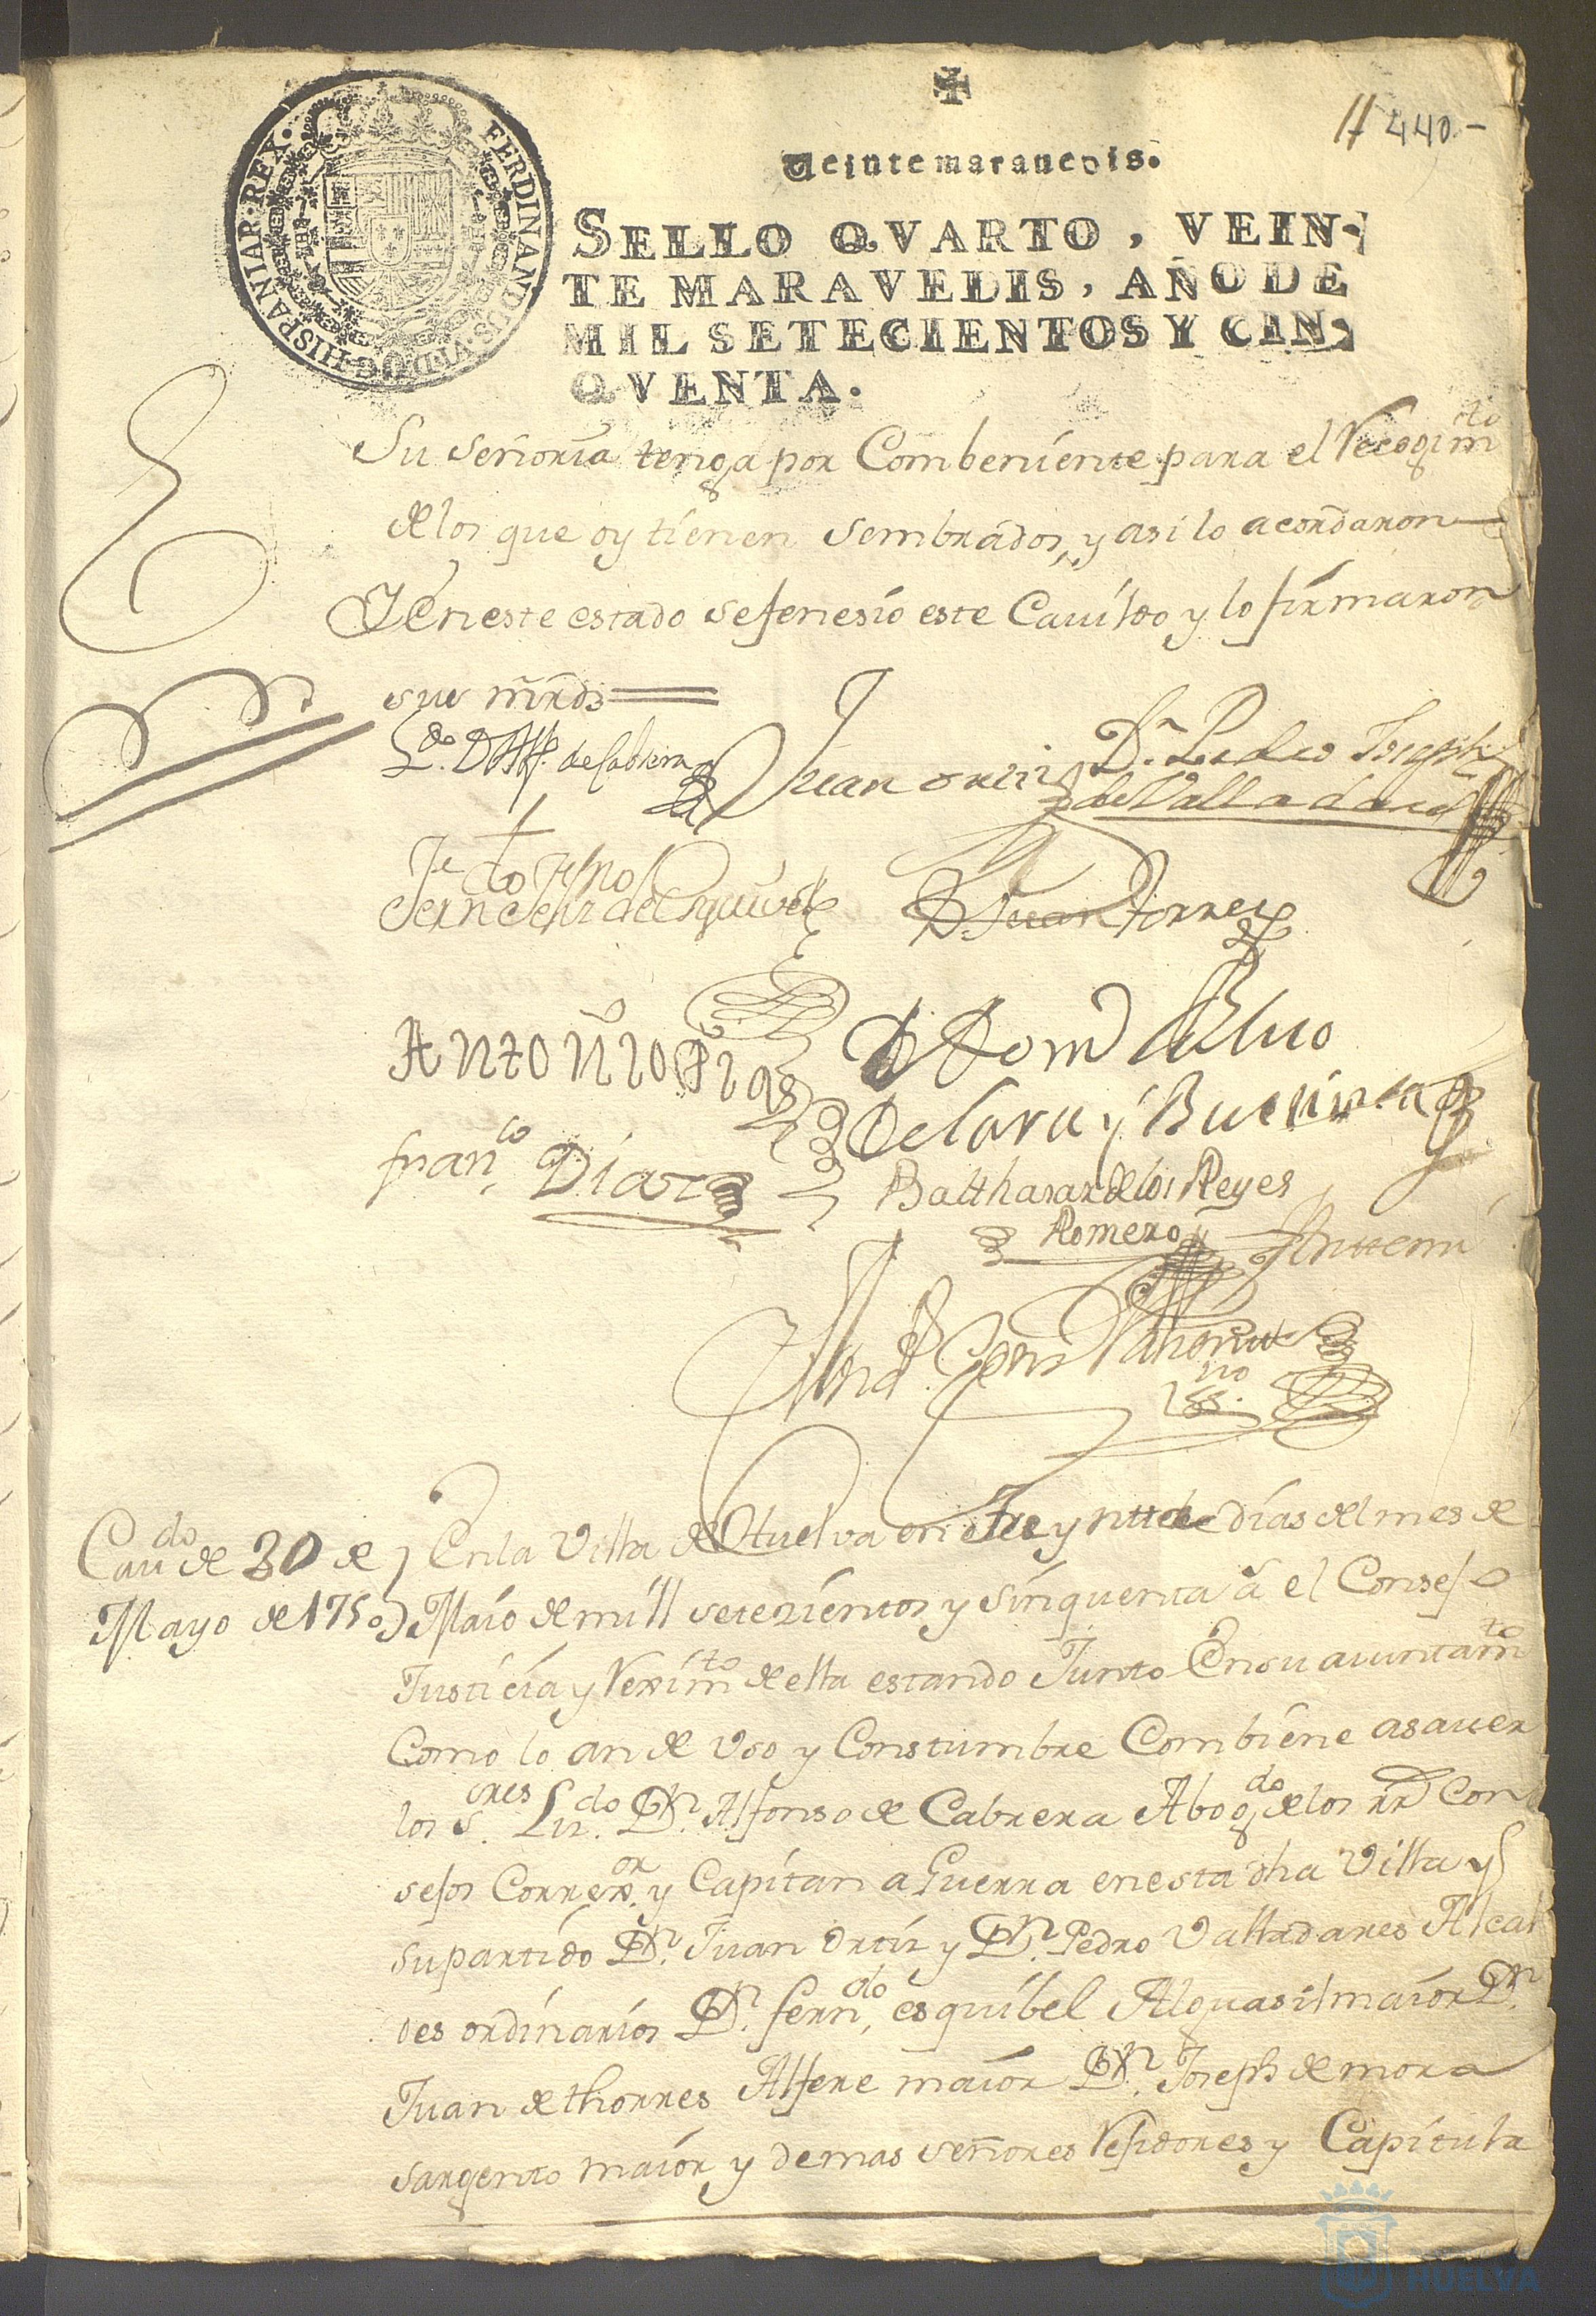 11 440-
Veinte maravedis.
FERDINANDUS·VI·D·G·HISPANIAR·REX·
SELLO QVARTO, VEIN-
TE MARAVEDIS, AÑO DE
MIL SETECIENTOS Y CIN-
QVENTA.
Su señoria tenga por Combeniente para el Recogimto
de los que oy tienen sembrados, y asi lo acordaron
Y en este estado se fenesio este Cavildo y lo firmaron
sus mrds
Ldo. D. Alf. de Cabrera
Juan Ortiz
Dn. Pedro Joseph
de Valladares
Esquivel
D. Juan Torres
Antonio
De Lara y
franco. Diaz
Balthasar de los Reyes
Romero
Ante mi
Cavdo de 30 de
Mayo de 1750
En la Villa de Huelva en treynta Dias del mes de
Maio de mill setezientos y sinquenta a. el Consejo
Justicia y Reximto de ella estando Junto En su aiuntamto
Como lo an de Uso y Constumbre Combiene asaver
los Sores. Liz.do Dn. Alfonso de Cabrera Abogdo de los RR Con
sejos Correxor. y Capitan a Guerra en esta dha Villa y
su partido Dn. Juan Ortiz y Dn. Pedro Valladares Alcal
des ordinarios Dn. ferndo, esquibel Alguasil maior Dn.
Juan de thorres Alfere maior Dn. Joseph de mora
sargento maior y demas señores Rejidores y Capitula
HUELVA